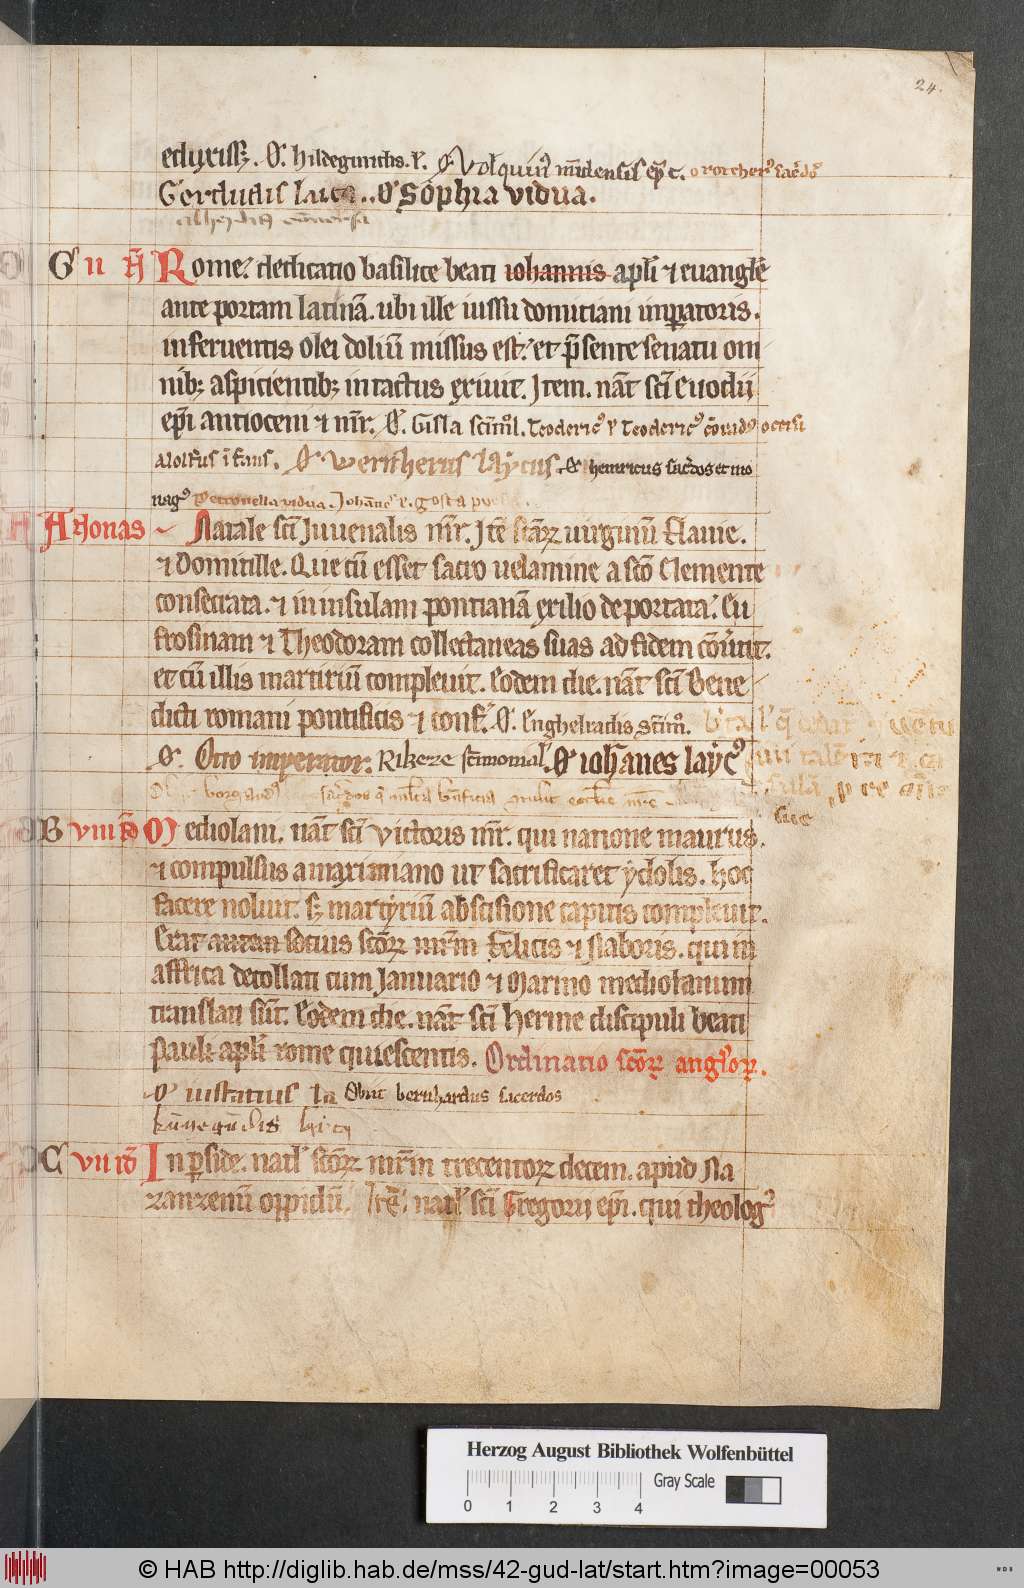 24.
eduxiss&. O. hildegundis. l. O Volquin9 mīdensis ep̄c.
Gerdrudis laica. O Sophia vidua.
G ii N̄ Rome. dedicatio basilice beati iohannis apl̄i ⁊ euangl̄e
ante portam latinā. ubi ille iussu domitiani imꝑatoris.
in feruentis olei doliū missus est. et p̄sente senatu om
nib; aspicientib; intactus exiuit. Item. nāt sc̄i Euodii
ep̄i antioceni ⁊ mr̄. O. Gisla sc̄im̄l. Teoderic9 l Teoderic9 occisi
O Wernherus laycus. O heinricus sac̄dos et mo
nag9 Petronella vidua. Johan̄e l.
A Nonas Natale sc̄i Iuuenalis mr̄. Itē sc̄aꝝ uirginū Flauie.
⁊ Domitille. Que cū esset sacro uelamine a sc̄o Clemente
consecrata. ⁊ in insulam pontianā exilio deportata. Eu
frosinam ⁊ Theodoram collectaneas suas ad fidem cōu̓tit.
et cū illis martiriū compleuit. Eodem die. nāt sc̄i Bene
dicti romani pontificis ⁊ conf. O. Enghelradis sc̄im̄.
O. Otto imperator. Rikeze sc̄imonial. O iohanes layc9
B viii id̄ Mediolani. nāt sc̄i Victoris mr̄. qui natione maurus.
⁊ compulsus a maximiano ut sacrificaret ydolis. hoc
facere noluit. s; martyriū abscisione capitis compleuit.
Erat autem socius sc̄oꝝ mr̄m Felicis ⁊ Naboris. qui in
affrica decollati cum Ianuario ⁊ Marino mediolanum
translati sūt. Eodem die. nāt sc̄i Herme discipuli beati
Pauli apl̄i rome quiescentis. Ordinatio sc̄oꝝ angl̓oꝝ.
O iustatius la Obiit bernhardus sacerdos
kūnegūdis laica
C vii id̄ In ꝑside. natl̓ sc̄oꝝ mr̄m trecentoꝝ decem. apud Na
zanzenū oppidū. Itē. natl̓ sc̄i Gregorii ep̄i. qui theolog9
Herzog August Bibliothek Wolfenbüttel
Gray Scale
0 1 2 3 4
© HAB http://diglib.hab.de/mss/42-gud-lat/start.htm?image=00053